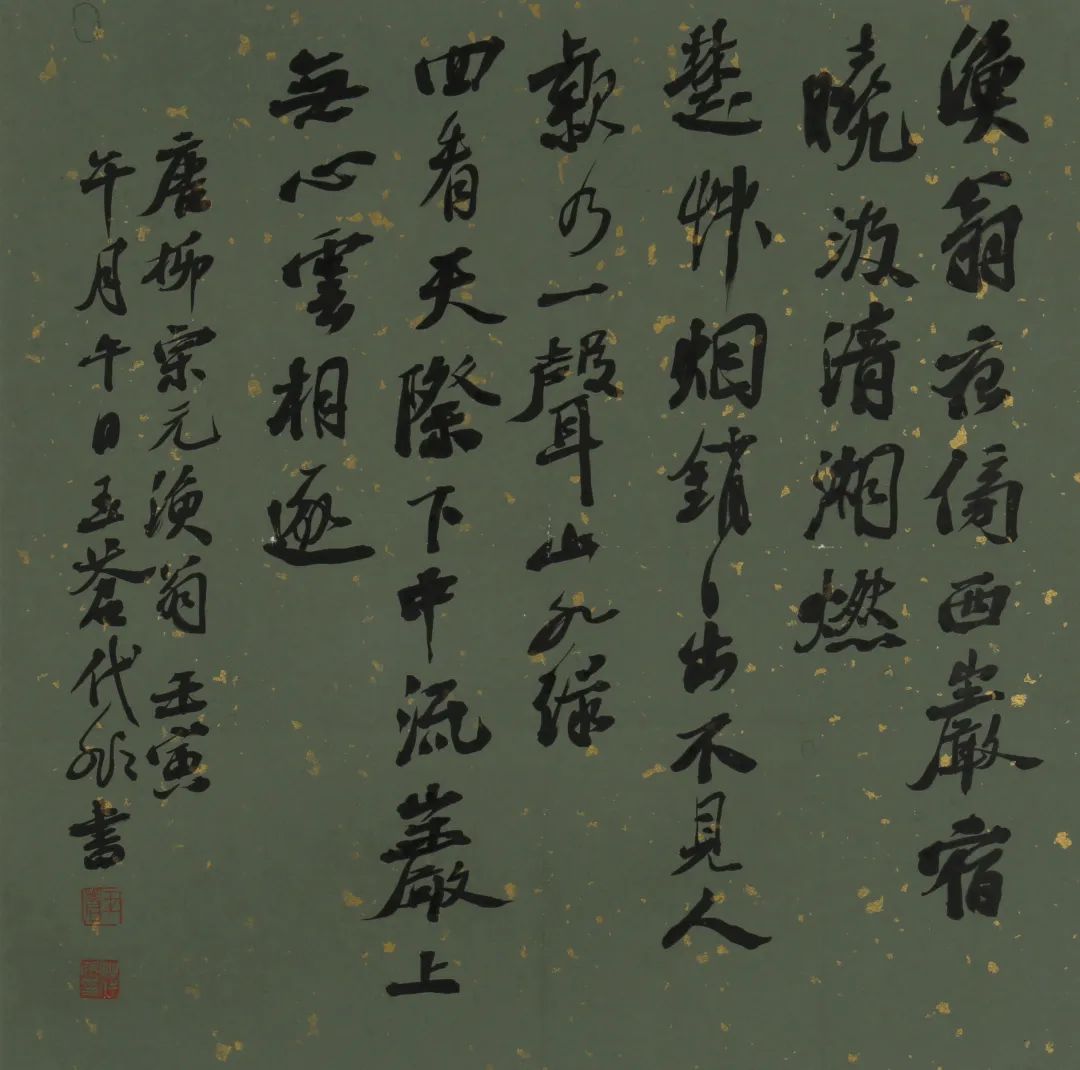 漁翁夜傍西巖宿
曉汲清湘燃
楚竹烟銷日出不見人
欸乃一聲山水綠
回看天際下中流巖上
無心雲相逐
唐柳宗元漁翁 壬寅
午月午日玉蒼代書